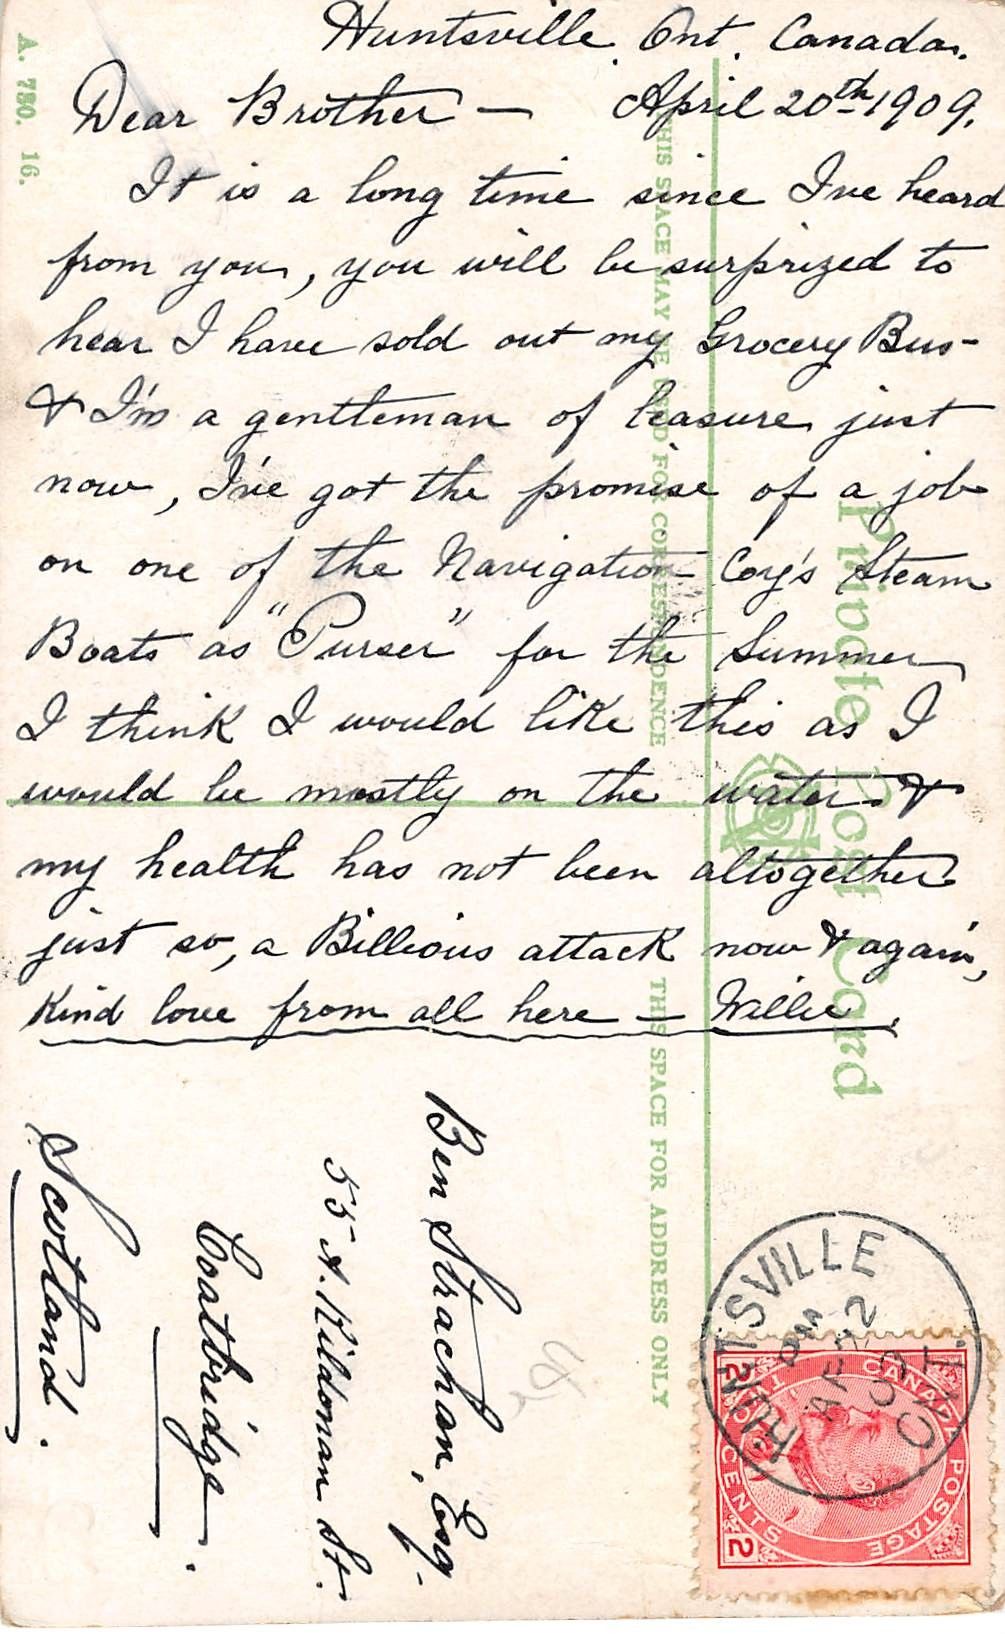 Huntsville. Ont. Canada.
Dear Brother — April 20th-1909.
It is a long time since I've heard
from you, you will be surprized to
hear I have sold out my Grocery Bus-
& I'm a gentleman of leasure just
now, I've got the promise of a job
on one of the Navigation Coy's Steam
Boats as "Purser" for the Summer
I think I would like this as I
would be mostly on the water. &
my health has not been altogether
just so, a Billious attack now & again,
Kind love from all here — Willie.
Ben Strachan, Esq.
55 A. Kildonan St.
Coatbridge.
Scotland.
Private Post Card
THIS SPACE MAY BE USED FOR CORRESPONDENCE
THIS SPACE FOR ADDRESS ONLY
A. 780. 16.
HUNTSVILLE
PM
AP 2
09
ONT.
CANADA POSTAGE
2 TWO CENTS 2